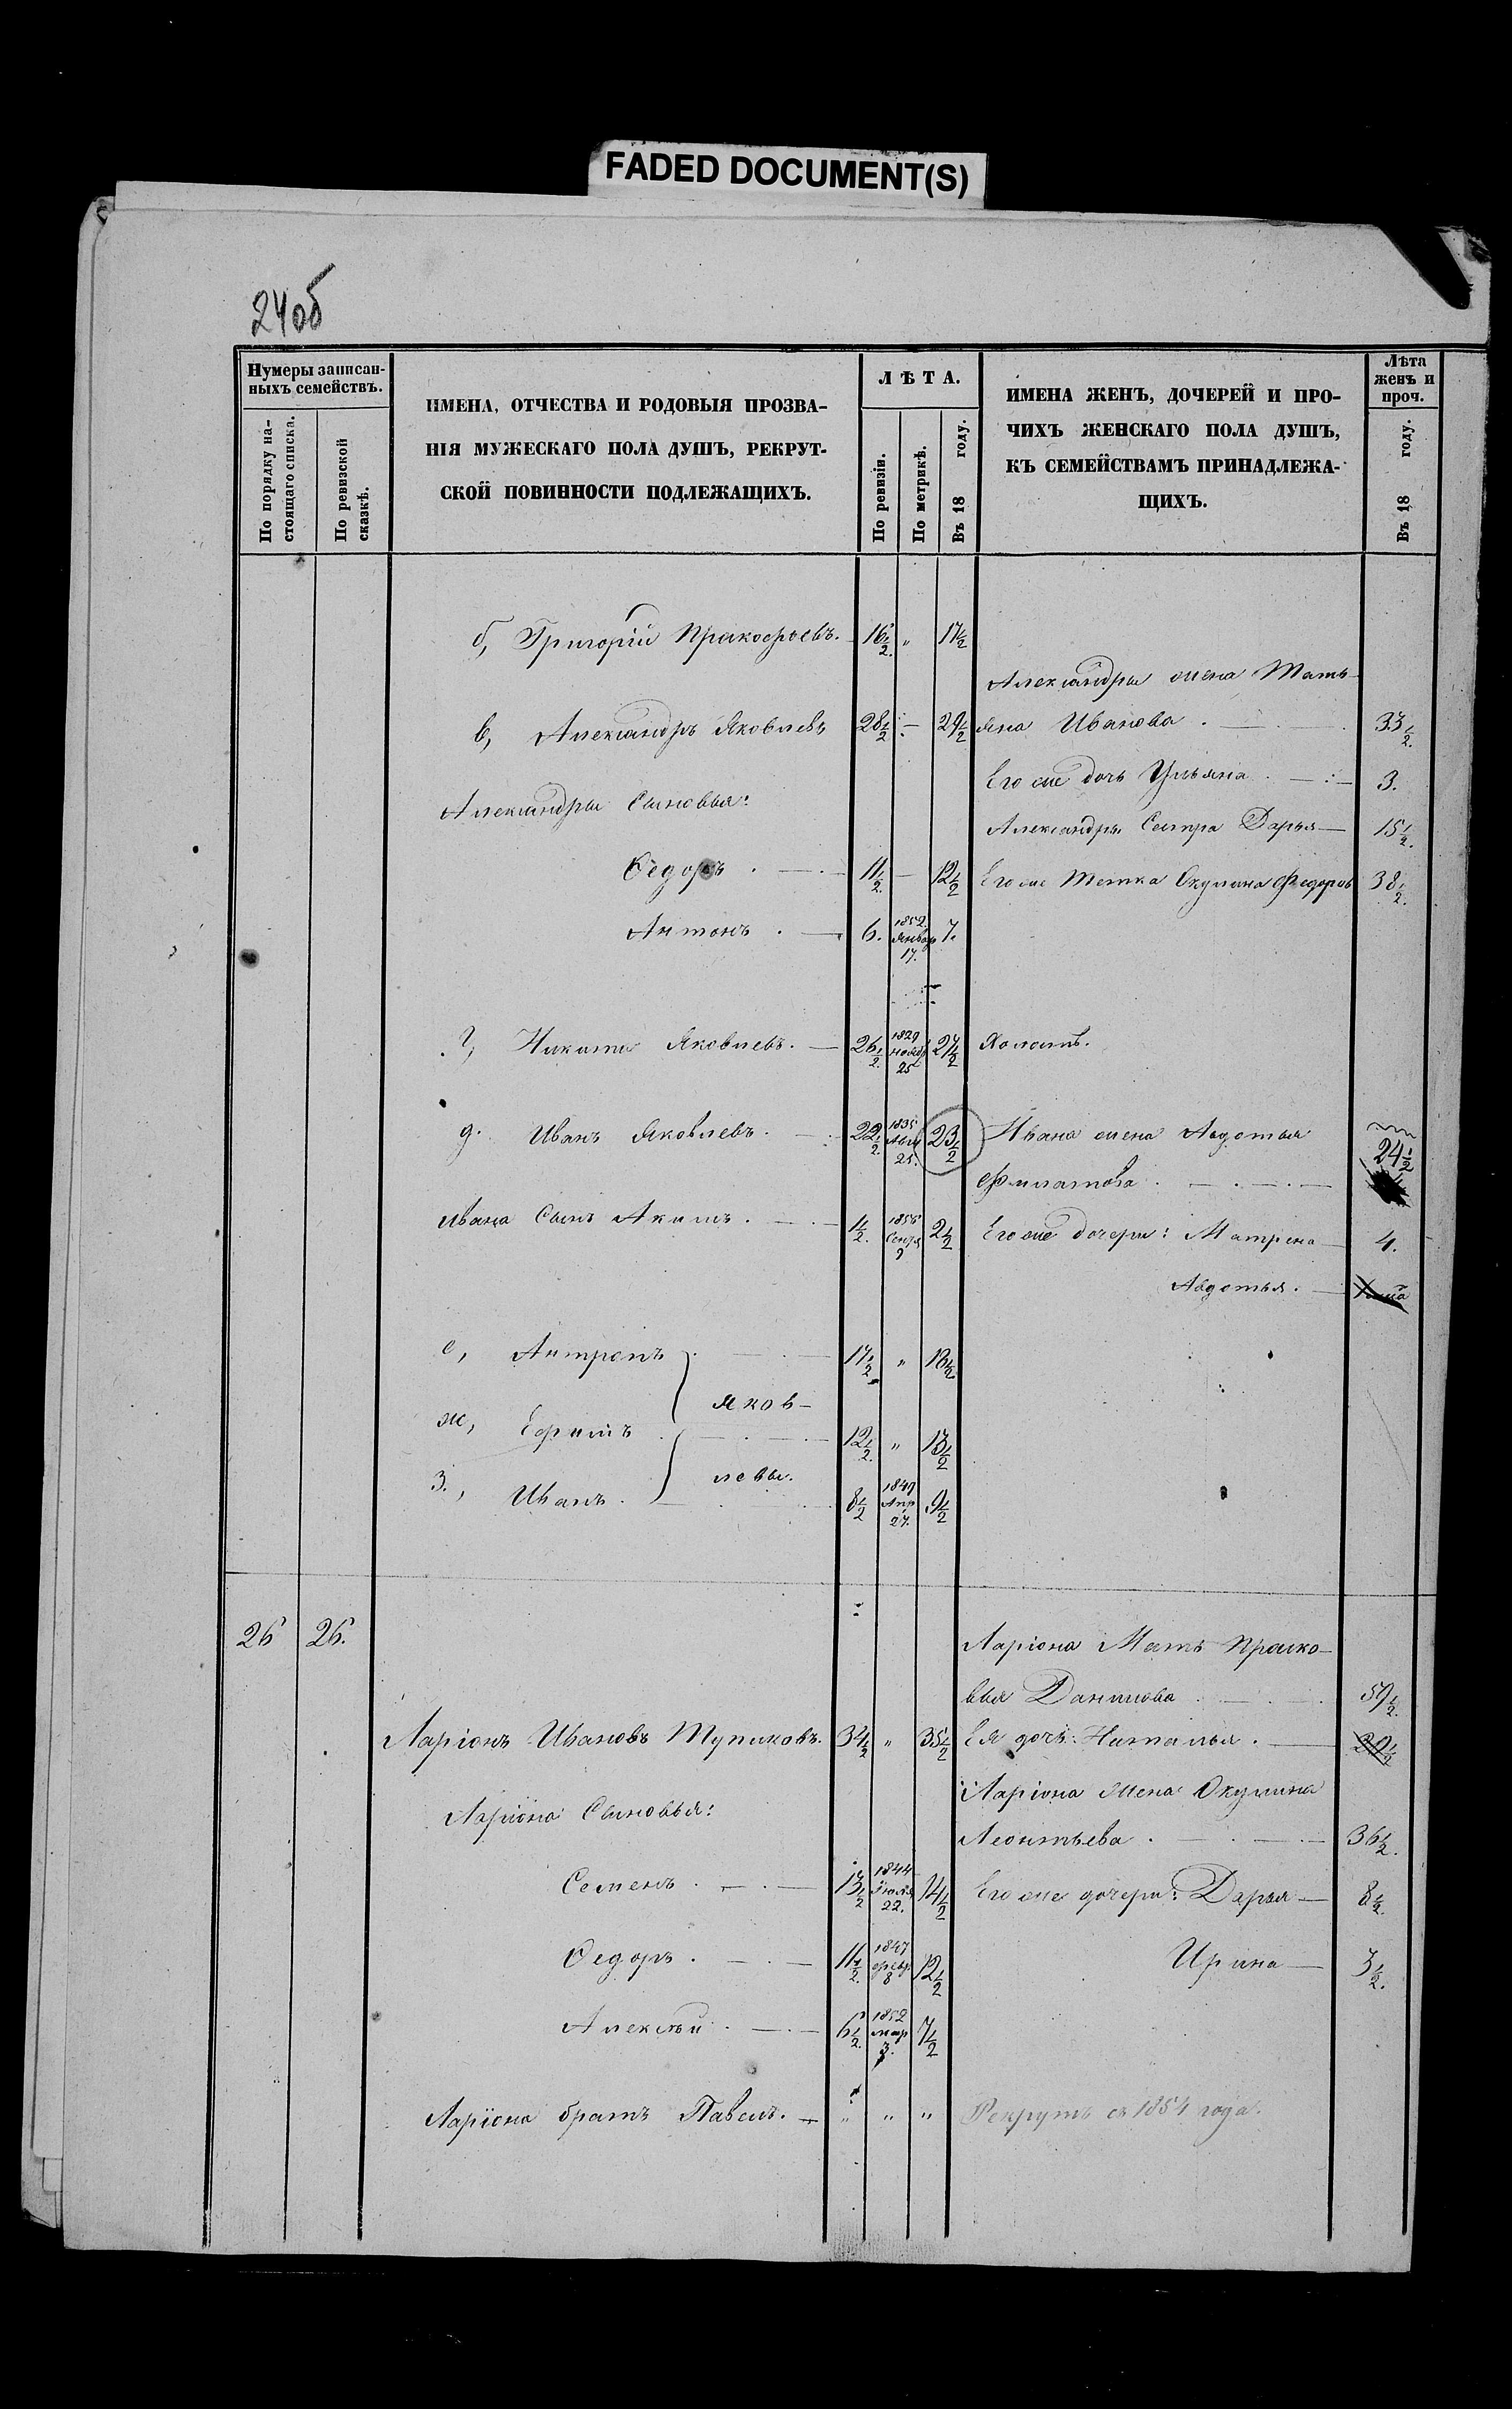 FADED DOCUMENT(S)
24об
Нумеры записан-
ныхъ семействъ.
По порядку на-
стоящаго списка.
По ревизской
сказкѣ.
ИМЕНА, ОТЧЕСТВА И РОДОВЫЯ ПРОЗВА-
НІЯ МУЖЕСКАГО ПОЛА ДУШЪ, РЕКРУТ-
СКОЙ ПОВИННОСТИ ПОДЛЕЖАЩИХЪ.
ЛѢТА.
По ревизіи.
По метрикѣ.
Въ 18 году.
ИМЕНА ЖЕНЪ, ДОЧЕРЕЙ И ПРО-
ЧИХЪ ЖЕНСКАГО ПОЛА ДУШЪ,
КЪ СЕМЕЙСТВАМЪ ПРИНАДЛЕЖА-
ЩИХЪ.
Лѣта
женъ и
проч.
Въ 18 году.
б, Григорій Пракофьевъ. 16 1/2. " 17 1/2
Александры жена Тать-
в, Александръ Яковлевъ 28 1/2 — 29 1/2 яна Иванова 33 1/2.
Его же дочь Ульяна 3.
Александры Сыновья:
Александры Сестра Дарья — 15 1/2.
Ѳедоръ 11 1/2. — 12 1/2 Его же тетка Окулина Федоров 38 1/2.
Антонъ 6. 1852 Январ 17. 7.
г, Никита Яковлевъ. 26 1/2. 1829 Нояб 25 27 1/2 Холостъ.
д. Иванъ Яковлевъ. 22 1/2. 1835 25. 23 1/2 Ивана жена Авдотья 24 1/2
Филатова
Ивана Сынъ Акимъ. 1 1/2. Сентя 9 2 1/2 Его же дочери: Матрена 4.
Авдотья.
е, Антропъ 17 1/2 " 18 1/2.
Яков-
ж, Ефимъ 12 1/2. " 13 1/2
левы.
з., Иванъ. 8 1/2 1849 Апр 27. 9 1/2
26 26.
Ларіона Мать Праско-
вья Данилова 59 1/2.
Ларіонъ Ивановъ Тупиковъ. 34 1/2 " 35 1/2 Ея дочь: Наталья. 20 1/2
Ларіона жена Окулина
Ларіона Сыновья:
Леонтьева 36 1/2.
Семенъ 13 1/2 1844 Іюля 22. 14 1/2 Его же дочери: Дарья — 8 1/2.
Ѳедоръ 11 1/2. 1847 февр 8 12 1/2 Ирина — 3 1/2.
Алексѣй 6 1/2. 1852 мар 3. 7 1/2
Ларіона братъ Павелъ. " " " Рекрутъ съ 1854 года.